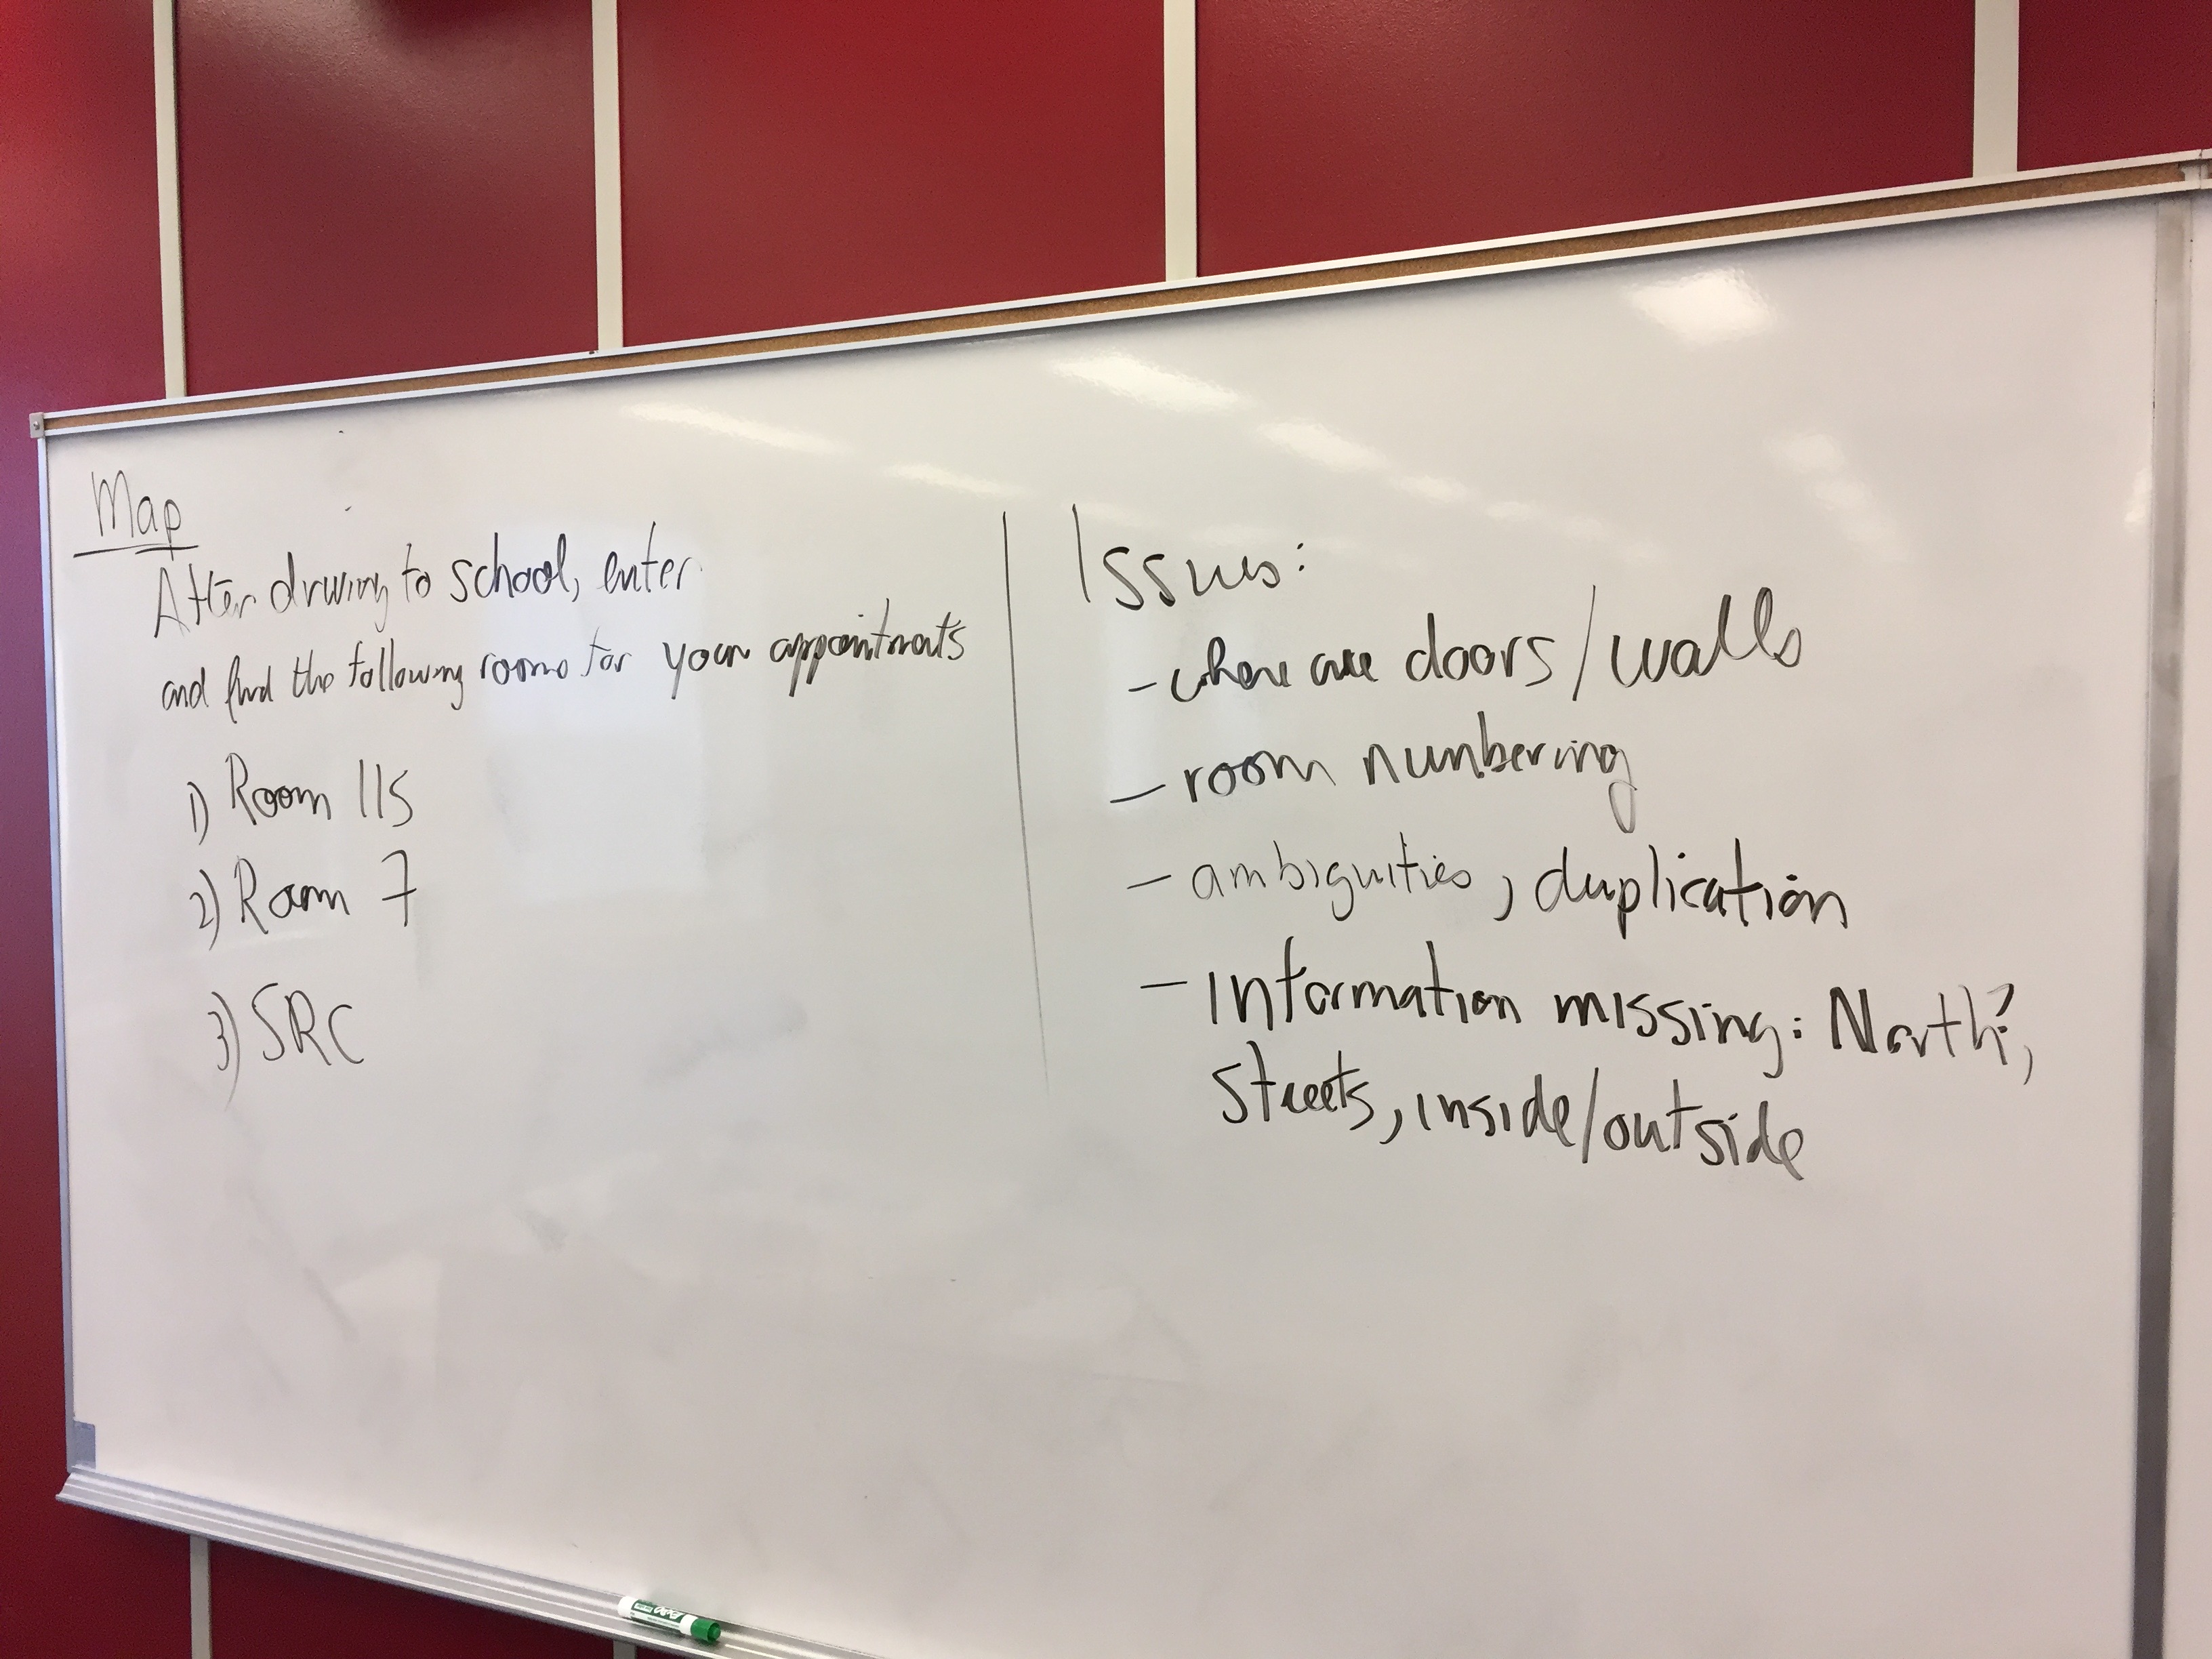 Map
After driving to school, enter
and find the following rooms for your appointments
1) Room 115
2) Room 7
3) SRC
Issues:
- where are doors/walls
- room numbering
- ambiguities, duplication
- Information missing: North?,
Streets, inside/outside
EXPO